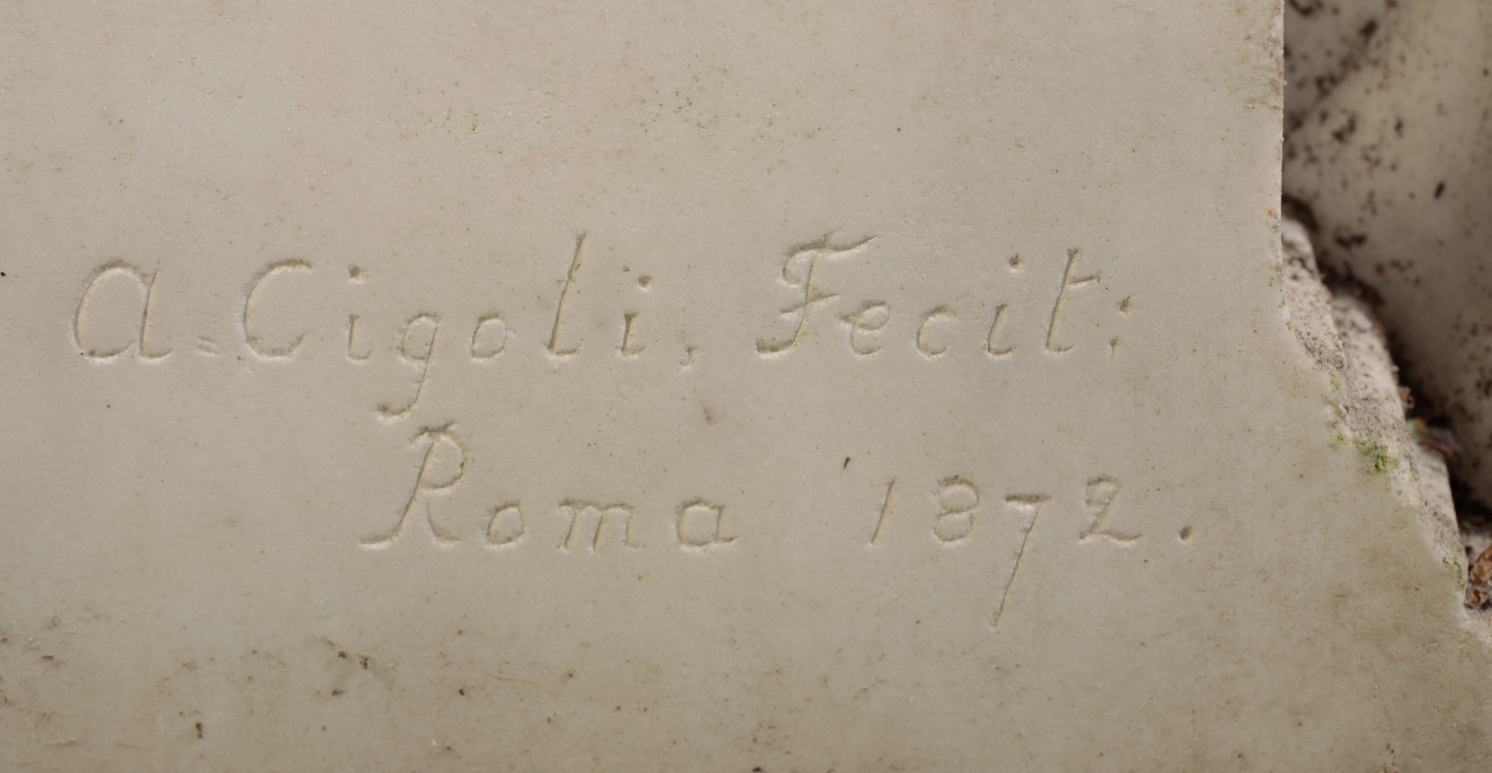 A=Cigoli, Fecit;
Roma 1872.